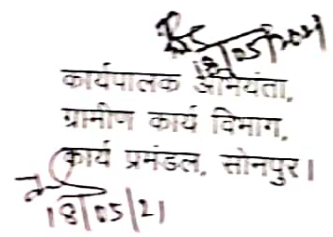 18/05/2021
कार्यपालक अभियंता,
ग्रामीण कार्य विभाग,
कार्य प्रमंडल, सोनपुर।
18/05/21